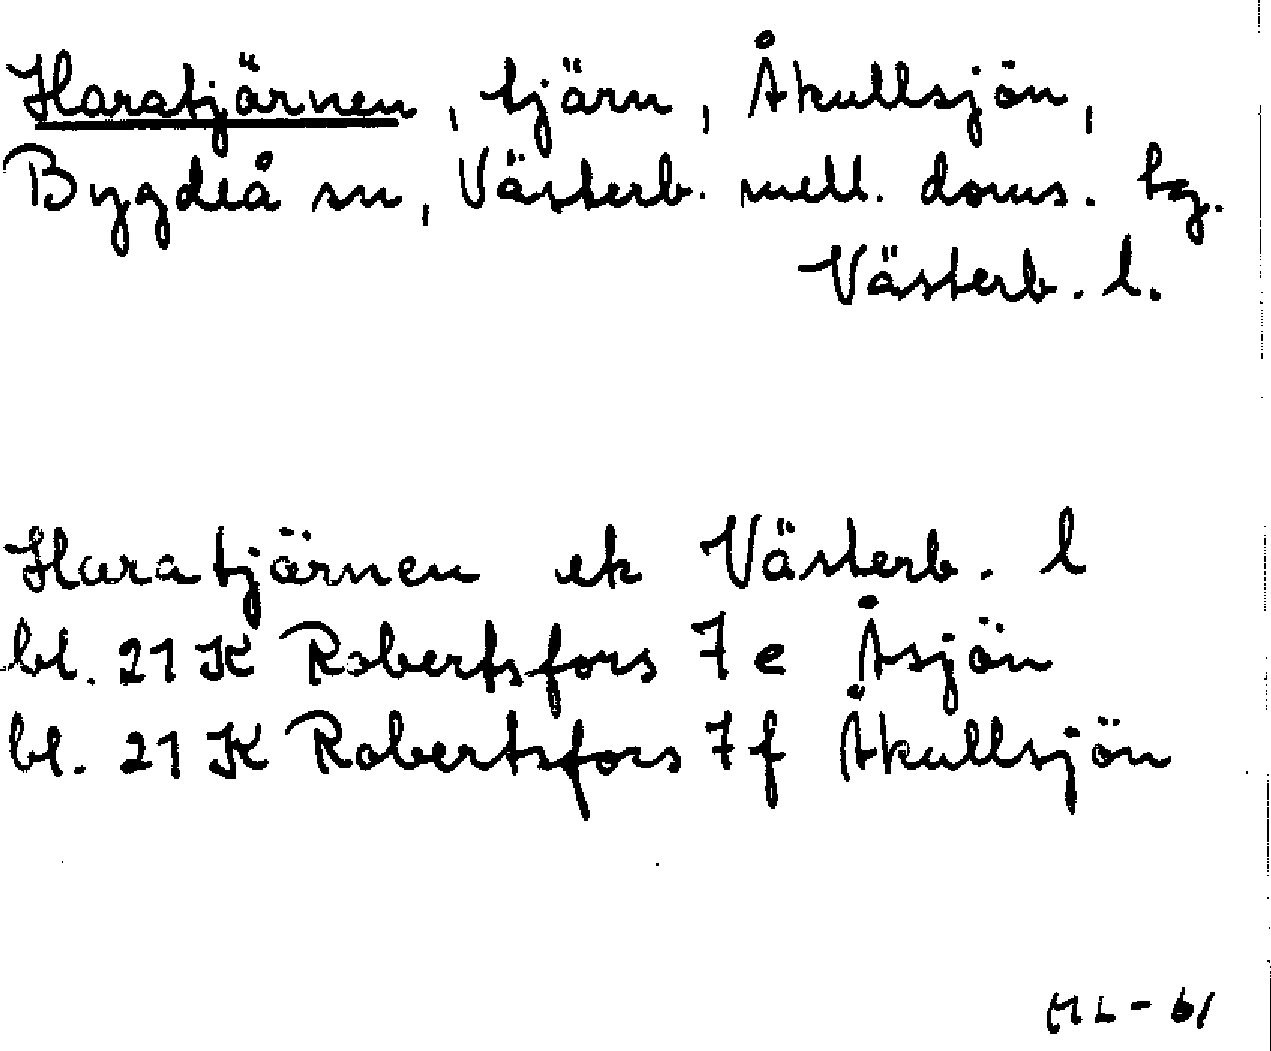 Haratjärnen, tjärn, Åkullsjön,
Bygdeå sn, Västerb. mell. doms. tg.
Västerb. l.
Haratjärnen ek Västerb. l
bl. 21 K Robertsfors 7 e Åsjön
bl. 21 K Robertsfors 7 f Åkullsjön
ML-61